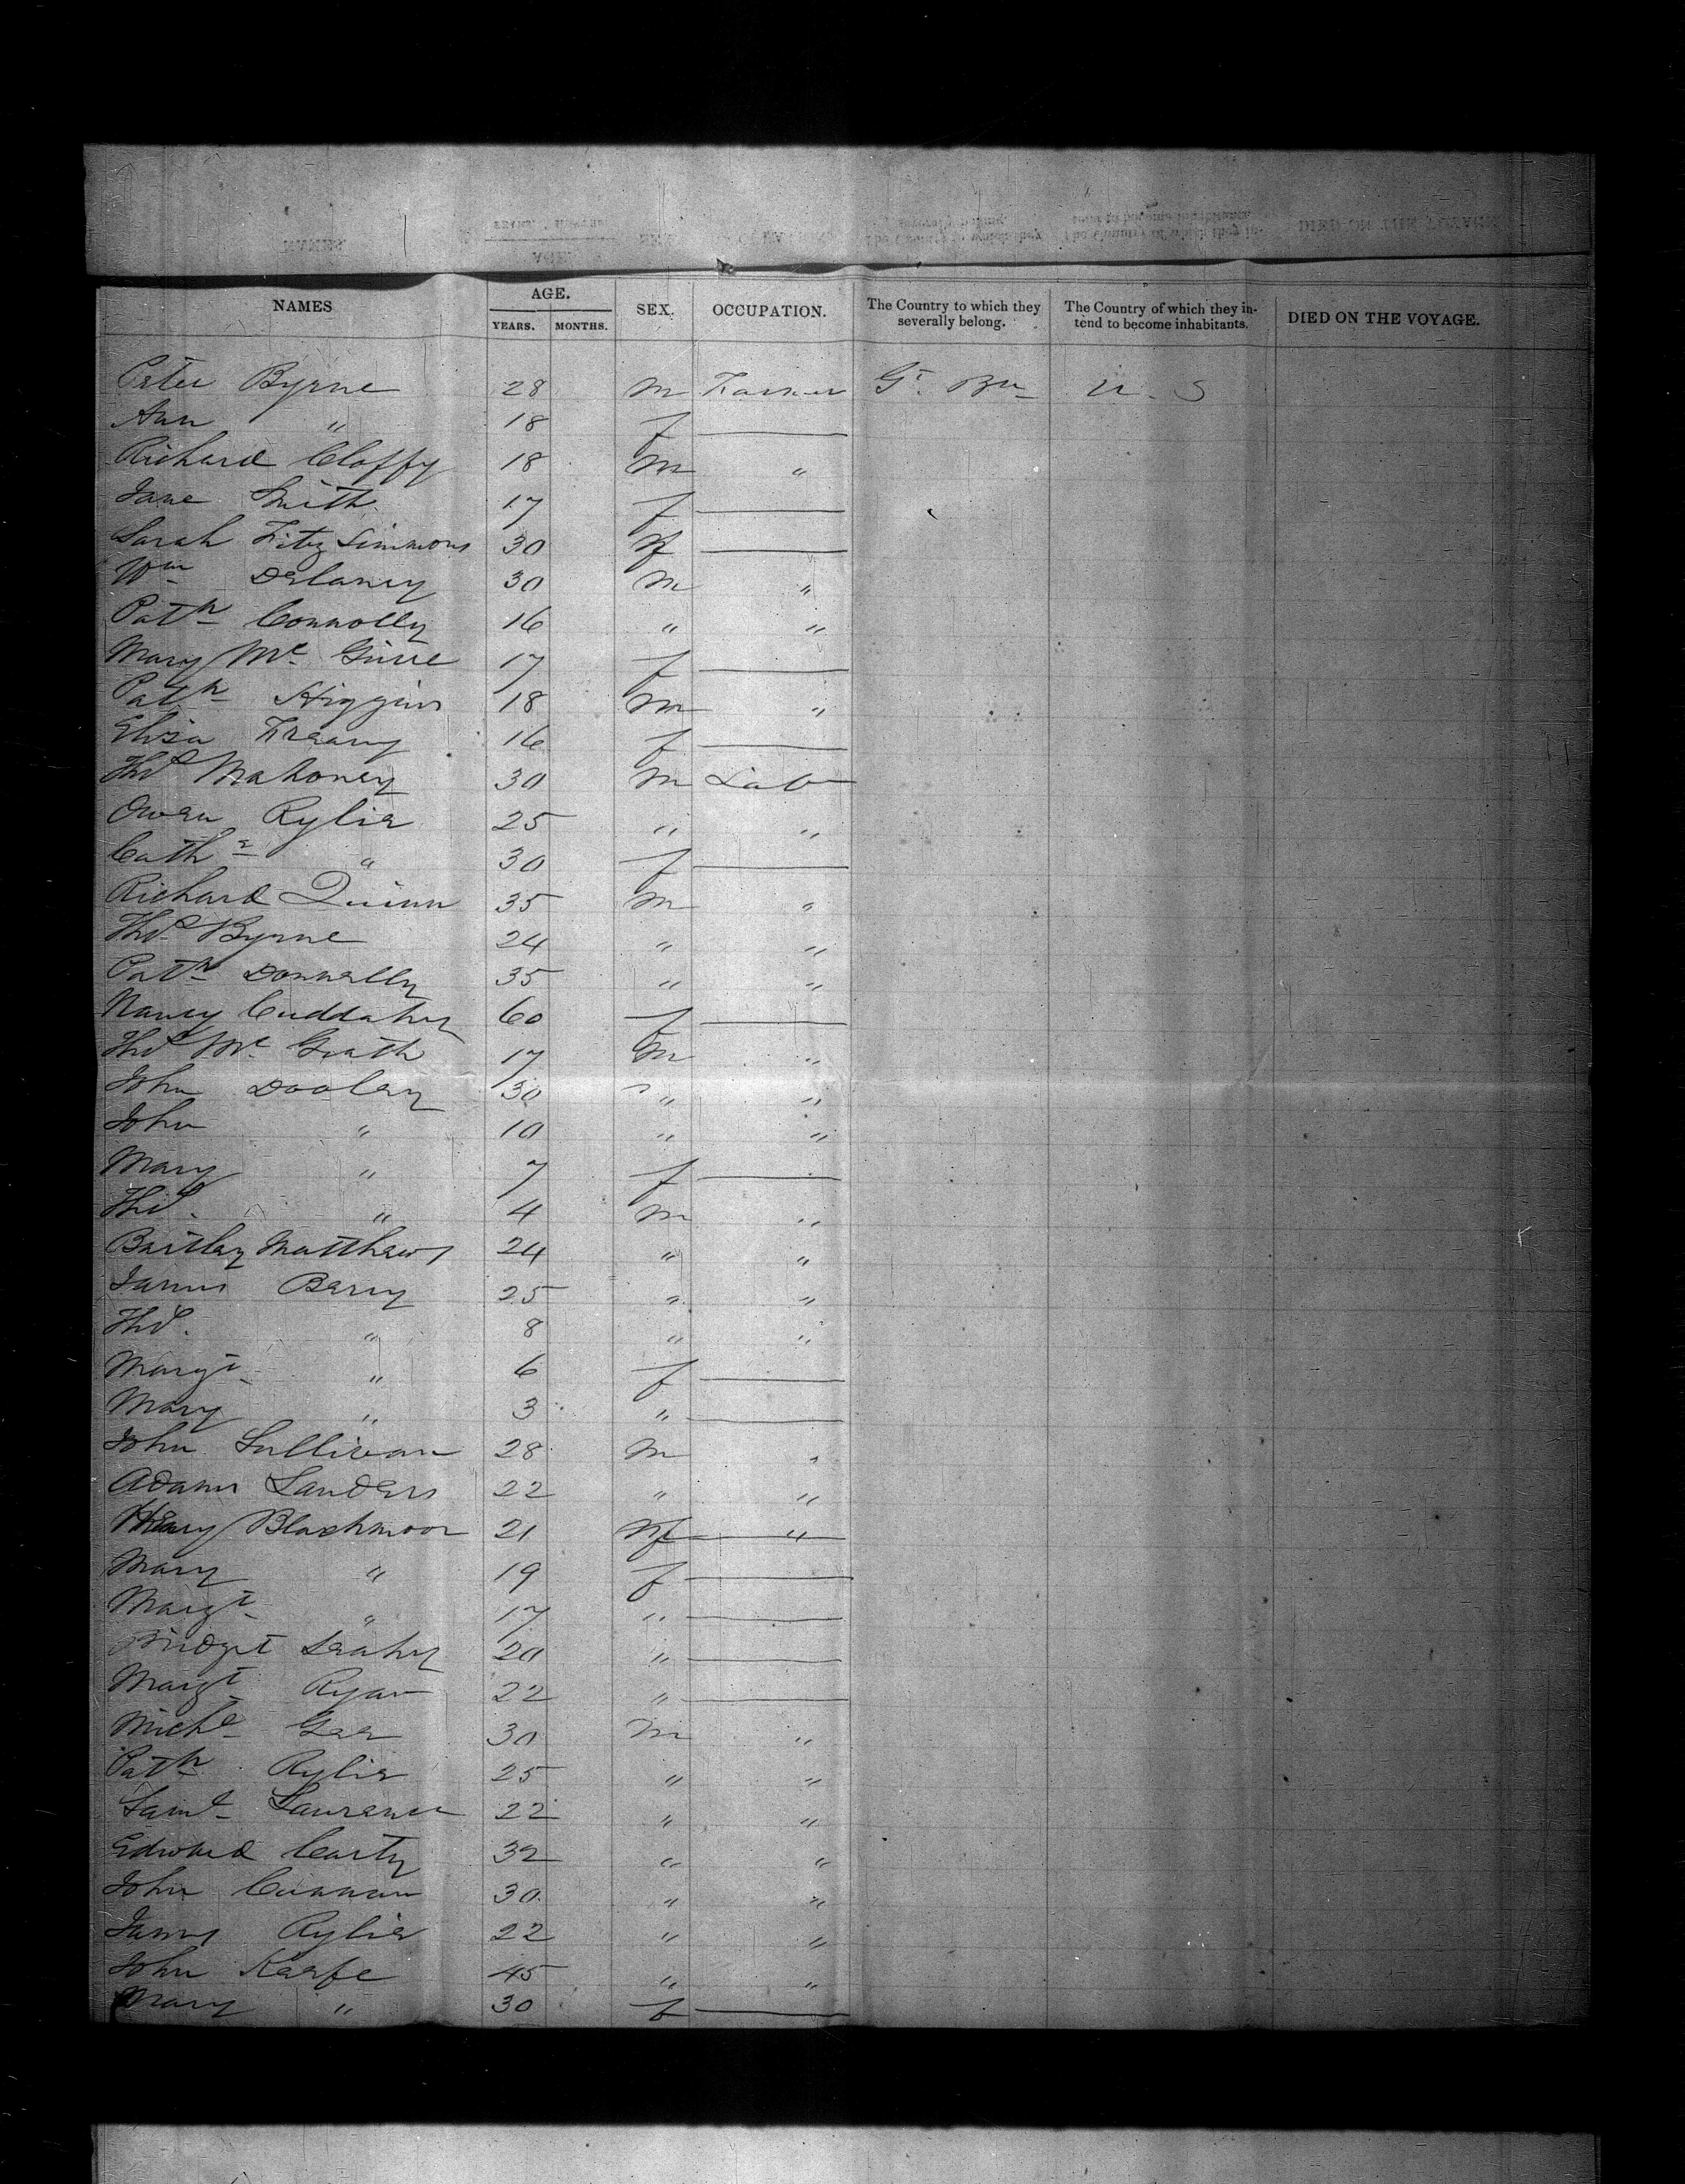 NAMES
AGE.
YEARS. MONTHS.
SEX.
OCCUPATION.
The Country to which they
severally belong.
The Country of which they in-
tend to become inhabitants.
DIED ON THE VOYAGE.
Peter Byrne 28 m Farmer Gt. Brn U. S
Ann " 18 f
Richard Claffy 18 m "
Jane Smith 17 f
Sarah Fitz Simmons 30 f
Wm Delaney 30 m "
Patk Connolly 16 " "
Mary Mc Guire 17 f
Patk Higgins 18 m "
Eliza Treany 16 f
Thos Mahoney 30 m Lab
Owen Rylie 25 " "
Cathe " 30 f
Richard Quinn 35 m "
Thos Byrne 24 " "
Patk Donnelly 35 " "
Nancy Cuddahy 60 f
Thos Mc Grath 17 m "
John Dooley 30 " "
John " 10 " "
Mary " 7 f
Thos. " 4 m "
Bartley Matthews 24 " "
James Berry 25 " "
Thos. " 8 " "
Margt " 6 f
Mary " 3 "
John Sullivan 28 m "
Adam Sanders 22 " "
Henry Blackmoor 21 "
Mary " 19 f
Margt " 17 "
Bridget Leahy 20 "
Margt Ryan 22 "
Michl Gee 30 m "
Patk Rylie 25 " "
Saml Laurence 22 " "
Edward Carty 32 " "
John 30 " "
James Rylie 22 " "
John Keefe 45 " "
Mary " 30 f